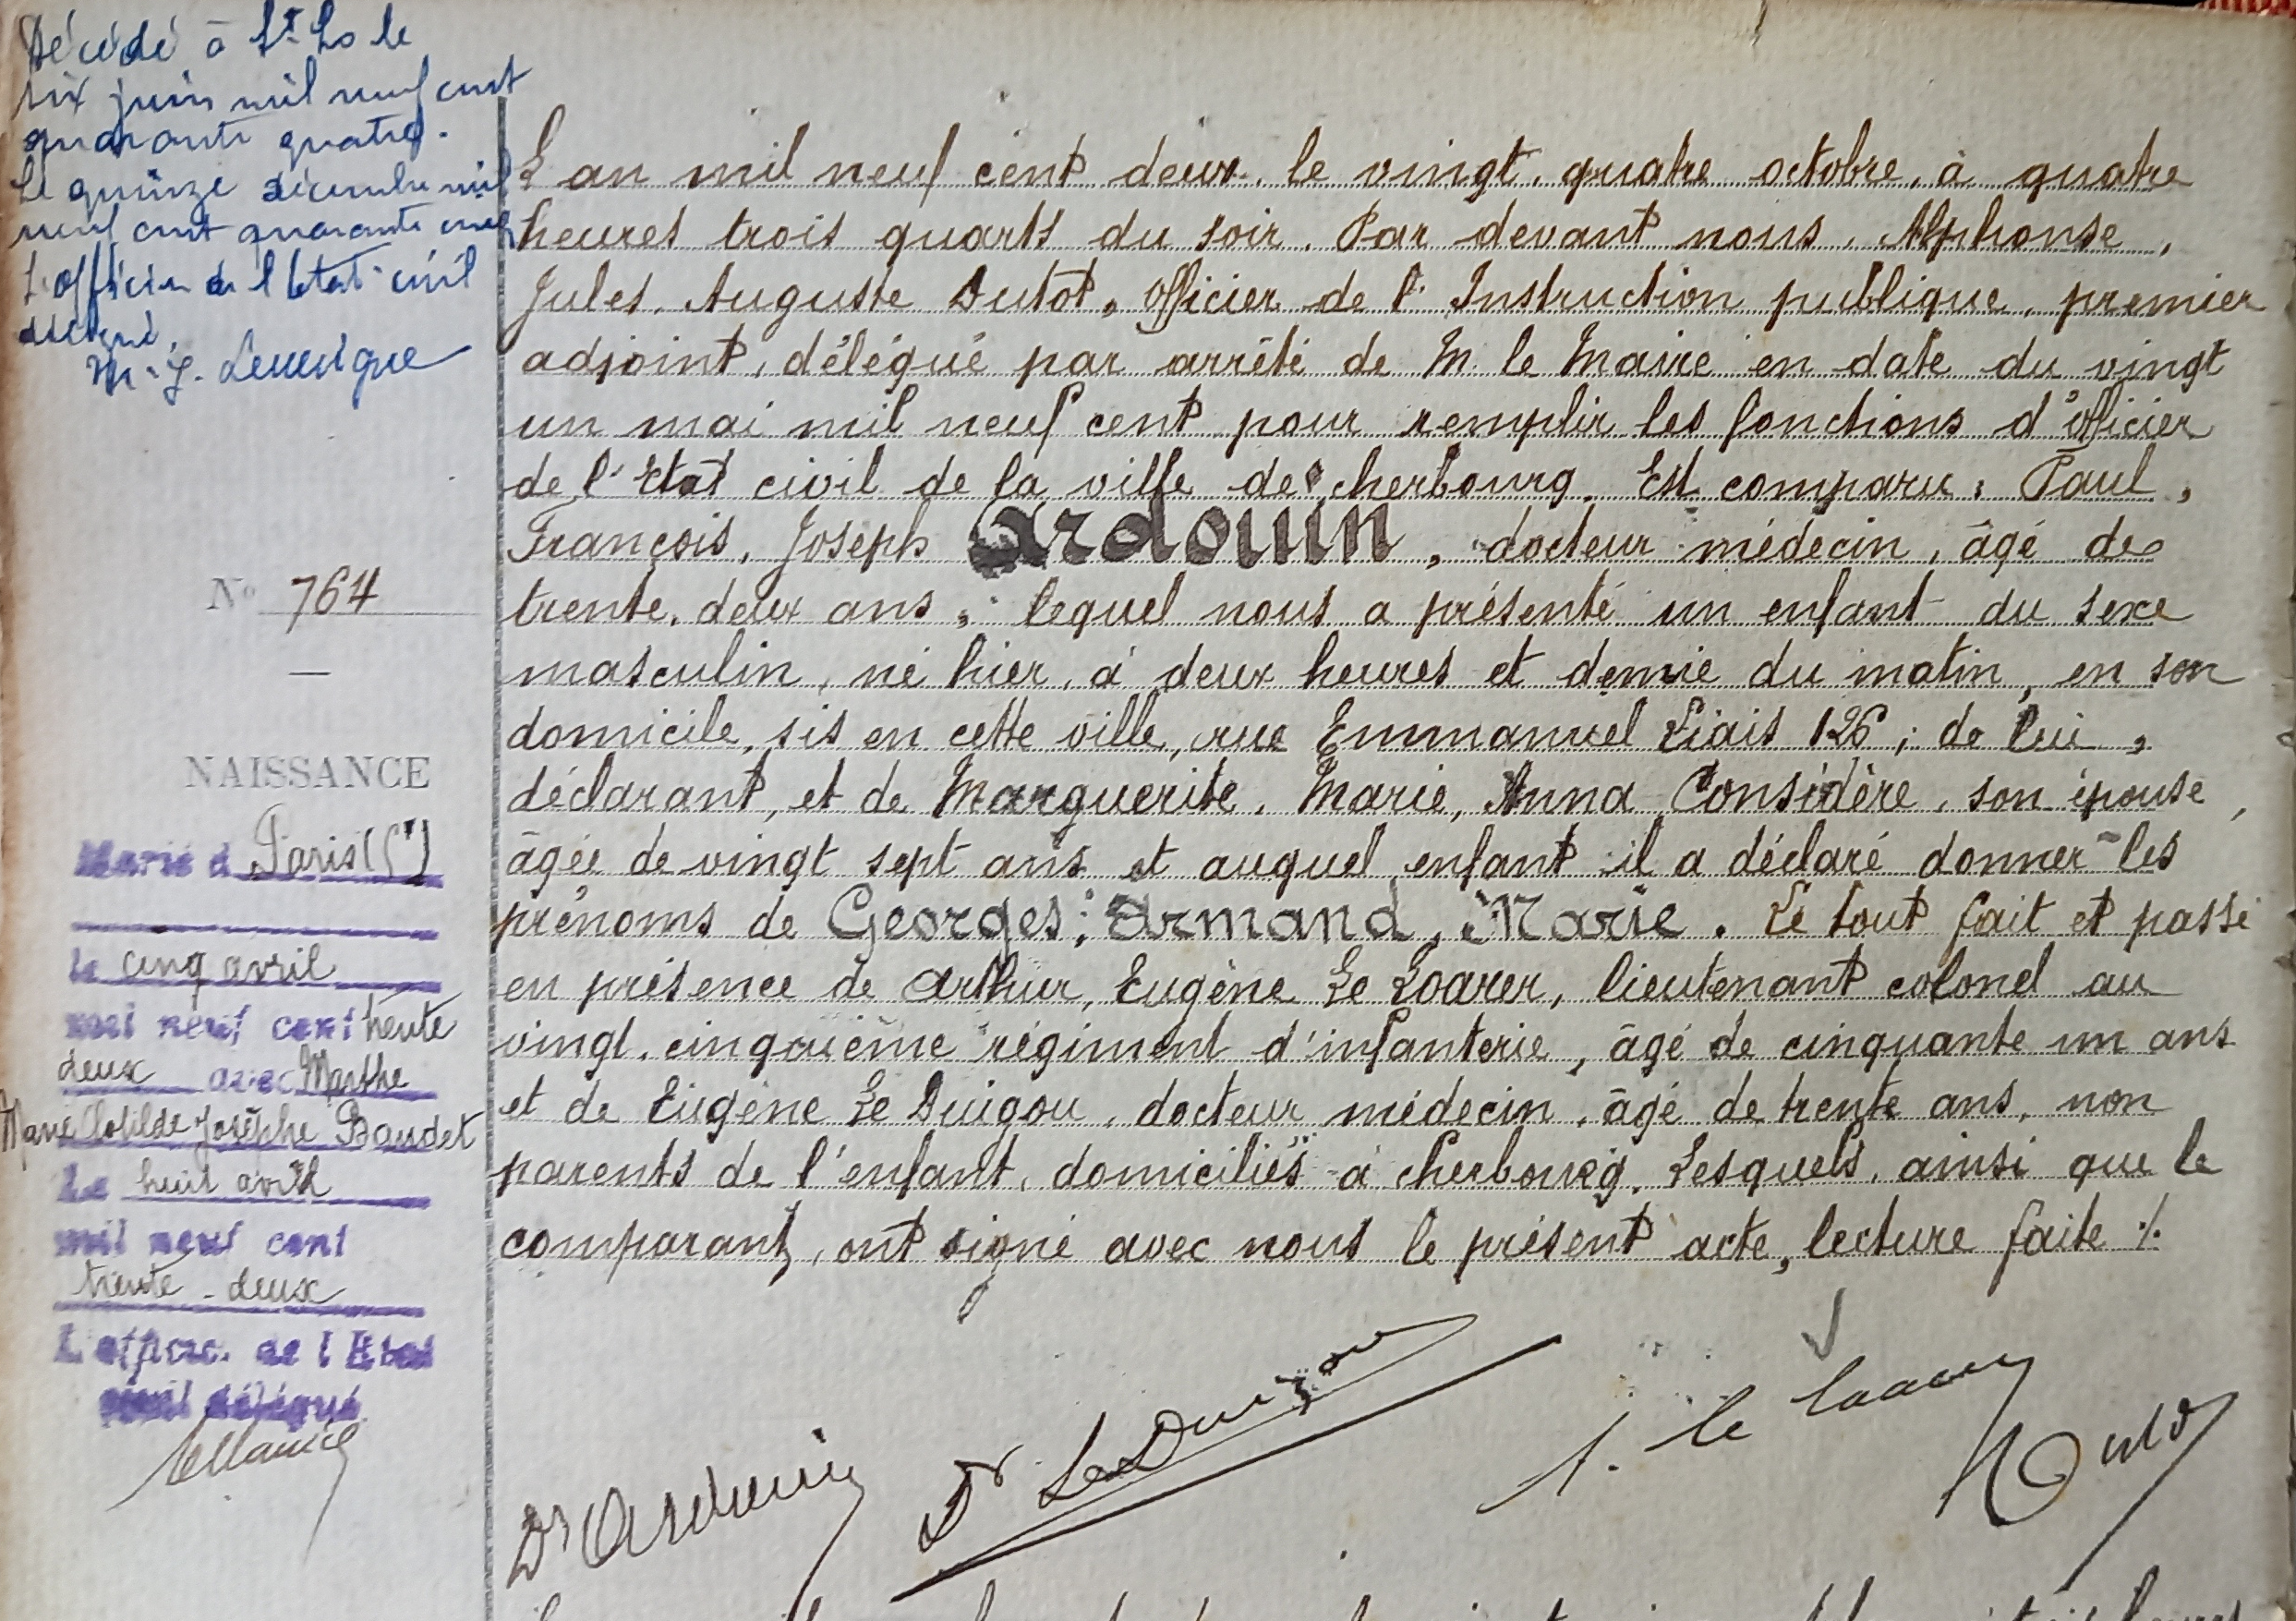 Décédé à St Lo le
six juin mil neuf cent
quarante quatre.
Le quinze décembre mil
neuf cent quarante cinq
L'officier de l'Etat-civil
délégué,
N° 764
NAISSANCE
Marié à Paris
le cinq avril
mil neuf cent trente
deux avec Marthe
Marie Clotilde Josèphe Baudet
Le huit avril
mil neuf cent
trente-deux
L'officier de l'Etat
civil délégué
L'an mil neuf cent deux, le vingt, quatre octobre, à quatre
heures trois quarts du soir. Par devant nous, Alphonse,
Jules, Auguste Dutot, officier de l'Instruction publique, premier
adjoint, délégué par arrêté de M. le Maire en date du vingt
un mai mil neuf cent pour remplir les fonctions d'officier
de l'Etat civil de la ville de Cherbourg. Est comparu, Paul,
François, Joseph Ardouin, docteur médecin, âgé de
trente, deux ans, lequel nous a présenté un enfant du sexe
masculin, né hier, à deux heures et demie du matin, en son
domicile, sis en cette ville, rue Emmanuel Liais 126; de lui,
déclarant, et de Marguerite, Marie, Anna Considère, son épouse,
âgée de vingt sept ans et auquel enfant il a déclaré donner les
prénoms de Georges, Armand, Marie. Le tout fait et passé
en présence de Arthur, Eugène Le Loarer, lieutenant colonel au
vingt, cinquième régiment d'infanterie, âgé de cinquante un ans
et de Eugène Le Duigou, docteur médecin, âgé de trente ans, non
parents de l'enfant, domiciliés à Cherbourg. Lesquels, ainsi que le
comparant, ont signé avec nous le présent acte, lecture faite ./.
Dr Ardouin
Dr Le Duigou